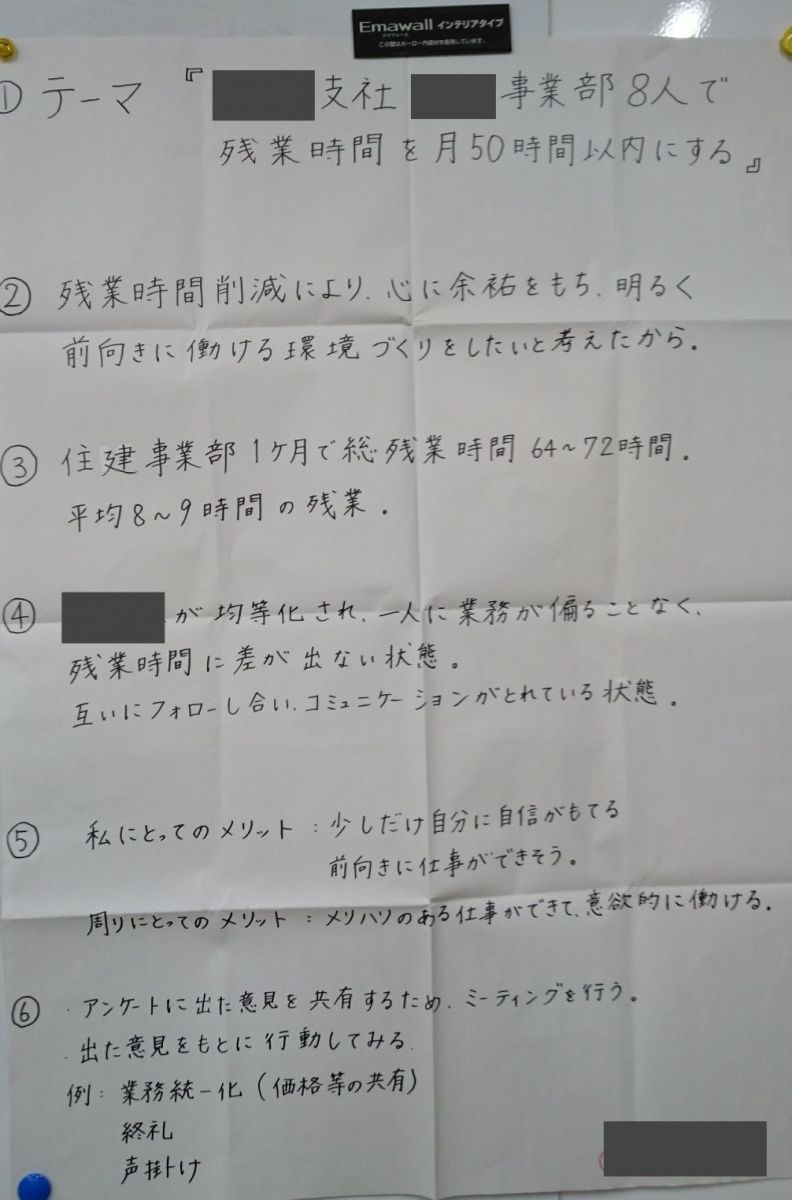 Emawall インテリアタイプ
エマウォール
この壁はホーロー内装材を使用しています。
① テーマ 『 支社 事業部 8人で
残業時間を月50時間以内にする』
② 残業時間削減により、心に余裕をもち、明るく
前向きに働ける環境づくりをしたいと考えたから。
③ 住建事業部1ケ月で総残業時間 64~72時間。
平均8~9時間の残業。
④ が均等化され、一人に業務が偏ることなく、
残業時間に差が出ない状態。
互いにフォローし合い、コミュニケーションがとれている状態。
⑤ 私にとってのメリット : 少しだけ自分に自信がもてる
前向きに仕事ができそう。
周りにとってのメリット : メリハリのある仕事ができて、意欲的に働ける。
⑥ ・アンケートに出た意見を共有するため、ミーティングを行う。
・出た意見をもとに行動してみる
例: 業務統一化 (価格等の共有)
終礼
声掛け